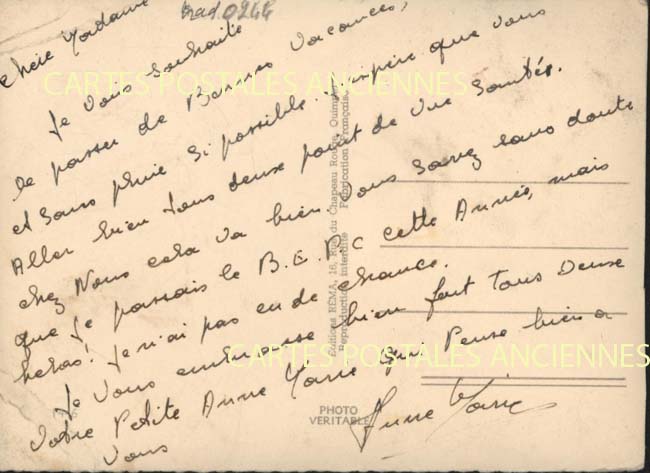 Chère Madame
Je vous souhaite
de passer de Bonnes Vacances,
et sans pluie si possible. J'espère que vous
Aller bien tous deux point de vue santés.
chez Nous cela va bien. Vous savez sans doute
que je passais le B.E.P.C cette Année, mais
helas! je n'ai pas eu de chance.
Je vous embrasse bien fort tous Deux
votre Petite Anne Marie qui Pense bien a
vous
Anne Marie
Editions RÉMA, 16, Rue du Chapeau Rouge, Quimper
Reproduction interdite Fabrication Française
PHOTO
VERITABLE
CARTES POSTALES ANCIENNES
CARTES POSTALES ANCIENNES